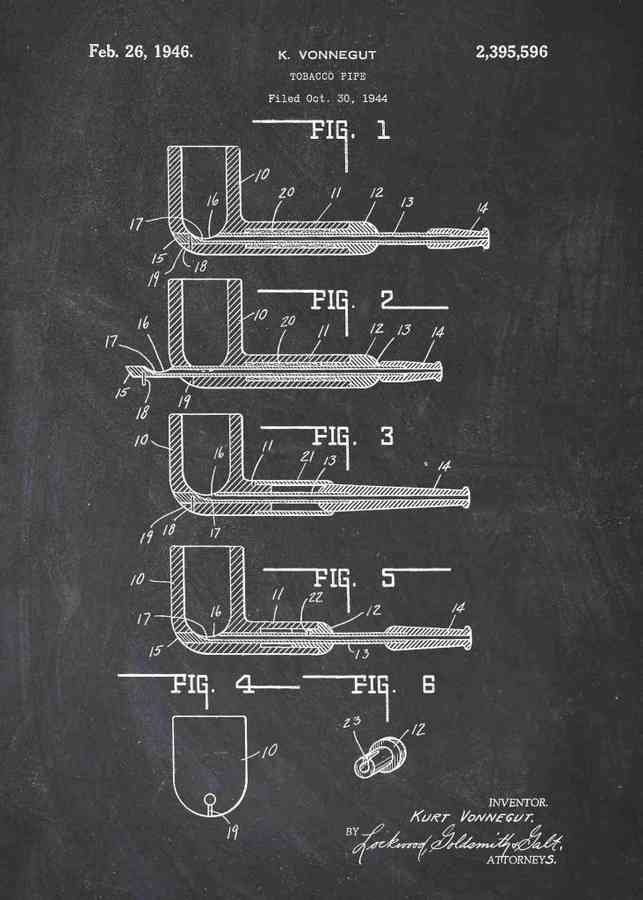 Feb. 26, 1946.
K. VONNEGUT
2,395,596
TOBACCO PIPE
Filed Oct. 30, 1944
FIG. 1
10
11
12
13
14
20
16
17
15
19
18
FIG. 2
10
20
11
12
13
14
16
17
15
18
19
FIG. 3
10
16
11
21
13
14
19
18
17
FIG. 5
10
11
22
12
14
17
16
15
13
FIG. 4
FIG. 6
10
19
23
12
INVENTOR.
KURT VONNEGUT.
BY Lockwood, Goldsmith & Galt,
ATTORNEYS.